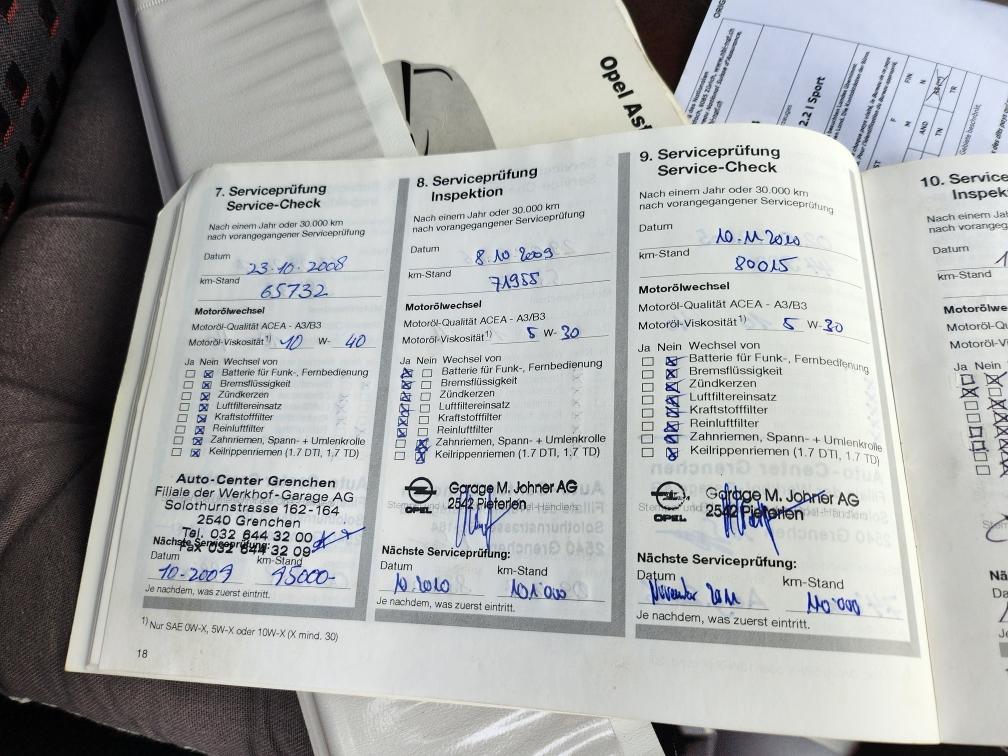 Opel Ast
2.2 l Sport
7. Serviceprüfung
Service-Check
Nach einem Jahr oder 30.000 km
nach vorangegangener Serviceprüfung
Datum
23.10.2008
km-Stand
65732
Motorölwechsel
Motoröl-Qualität ACEA - A3/B3
Motoröl-Viskosität1) 10 W- 40
Ja Nein Wechsel von
Batterie für Funk-, Fernbedienung
Bremsflüssigkeit
Zündkerzen
Luftfiltereinsatz
Kraftstofffilter
Reinluftfilter
Zahnriemen, Spann- + Umlenkrolle
Keilrippenriemen (1.7 DTI, 1.7 TD)
Auto-Center Grenchen
Filiale der Werkhof-Garage AG
Solothurnstrasse 162-164
2540 Grenchen
Tel. 032 644 32 00
Fax 032 644 32 09
Nächste Serviceprüfung:
Datum km-Stand
10-2009 95000-
Je nachdem, was zuerst eintritt.
1) Nur SAE 0W-X, 5W-X oder 10W-X (X mind. 30)
18
8. Serviceprüfung
Inspektion
Nach einem Jahr oder 30.000 km
nach vorangegangener Serviceprüfung
Datum
8.10.2009
km-Stand
71955
Motorölwechsel
Motoröl-Qualität ACEA - A3/B3
Motoröl-Viskosität1) 5 W-30
Ja Nein Wechsel von
Batterie für Funk-, Fernbedienung
Bremsflüssigkeit
Zündkerzen
Luftfiltereinsatz
Kraftstofffilter
Reinluftfilter
Zahnriemen, Spann- + Umlenkrolle
Keilrippenriemen (1.7 DTI, 1.7 TD)
OPEL
Garage M. Johner AG
2542 Pieterlen
Nächste Serviceprüfung:
Datum km-Stand
10.2010 101'000
Je nachdem, was zuerst eintritt.
9. Serviceprüfung
Service-Check
Nach einem Jahr oder 30.000 km
nach vorangegangener Serviceprüfung
Datum
10.11.2010
km-Stand
80015
Motorölwechsel
Motoröl-Qualität ACEA - A3/B3
Motoröl-Viskosität1) 5 W-30
Ja Nein Wechsel von
Batterie für Funk-, Fernbedienung
Bremsflüssigkeit
Zündkerzen
Luftfiltereinsatz
Kraftstofffilter
Reinluftfilter
Zahnriemen, Spann- + Umlenkrolle
Keilrippenriemen (1.7 DTI, 1.7 TD)
OPEL
Garage M. Johner AG
2542 Pieterlen
Nächste Serviceprüfung:
Datum km-Stand
November 2011 110'000
Je nachdem, was zuerst eintritt.
10. Service
Inspek
Nach einem Jah
nach vorange
Datum
km-Stand
Motorölwe
Motoröl-Q
Motoröl-Vi
Ja Nein